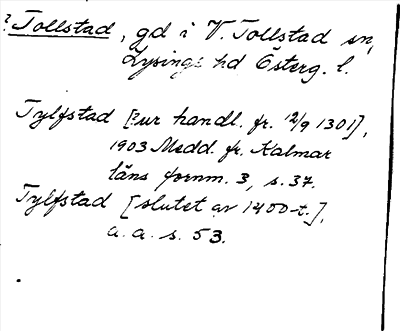 ? Tollstad, gd i V. Tollstad sn,
Lysings hd Österg. l.
Tylfstad [?ur handl. fr. 12/9 1301],
1903 Medd. fr. Kalmar
läns fornm. 3, s. 37.
Tylfstad [slutet av 1400-t.],
a. a. s. 53.